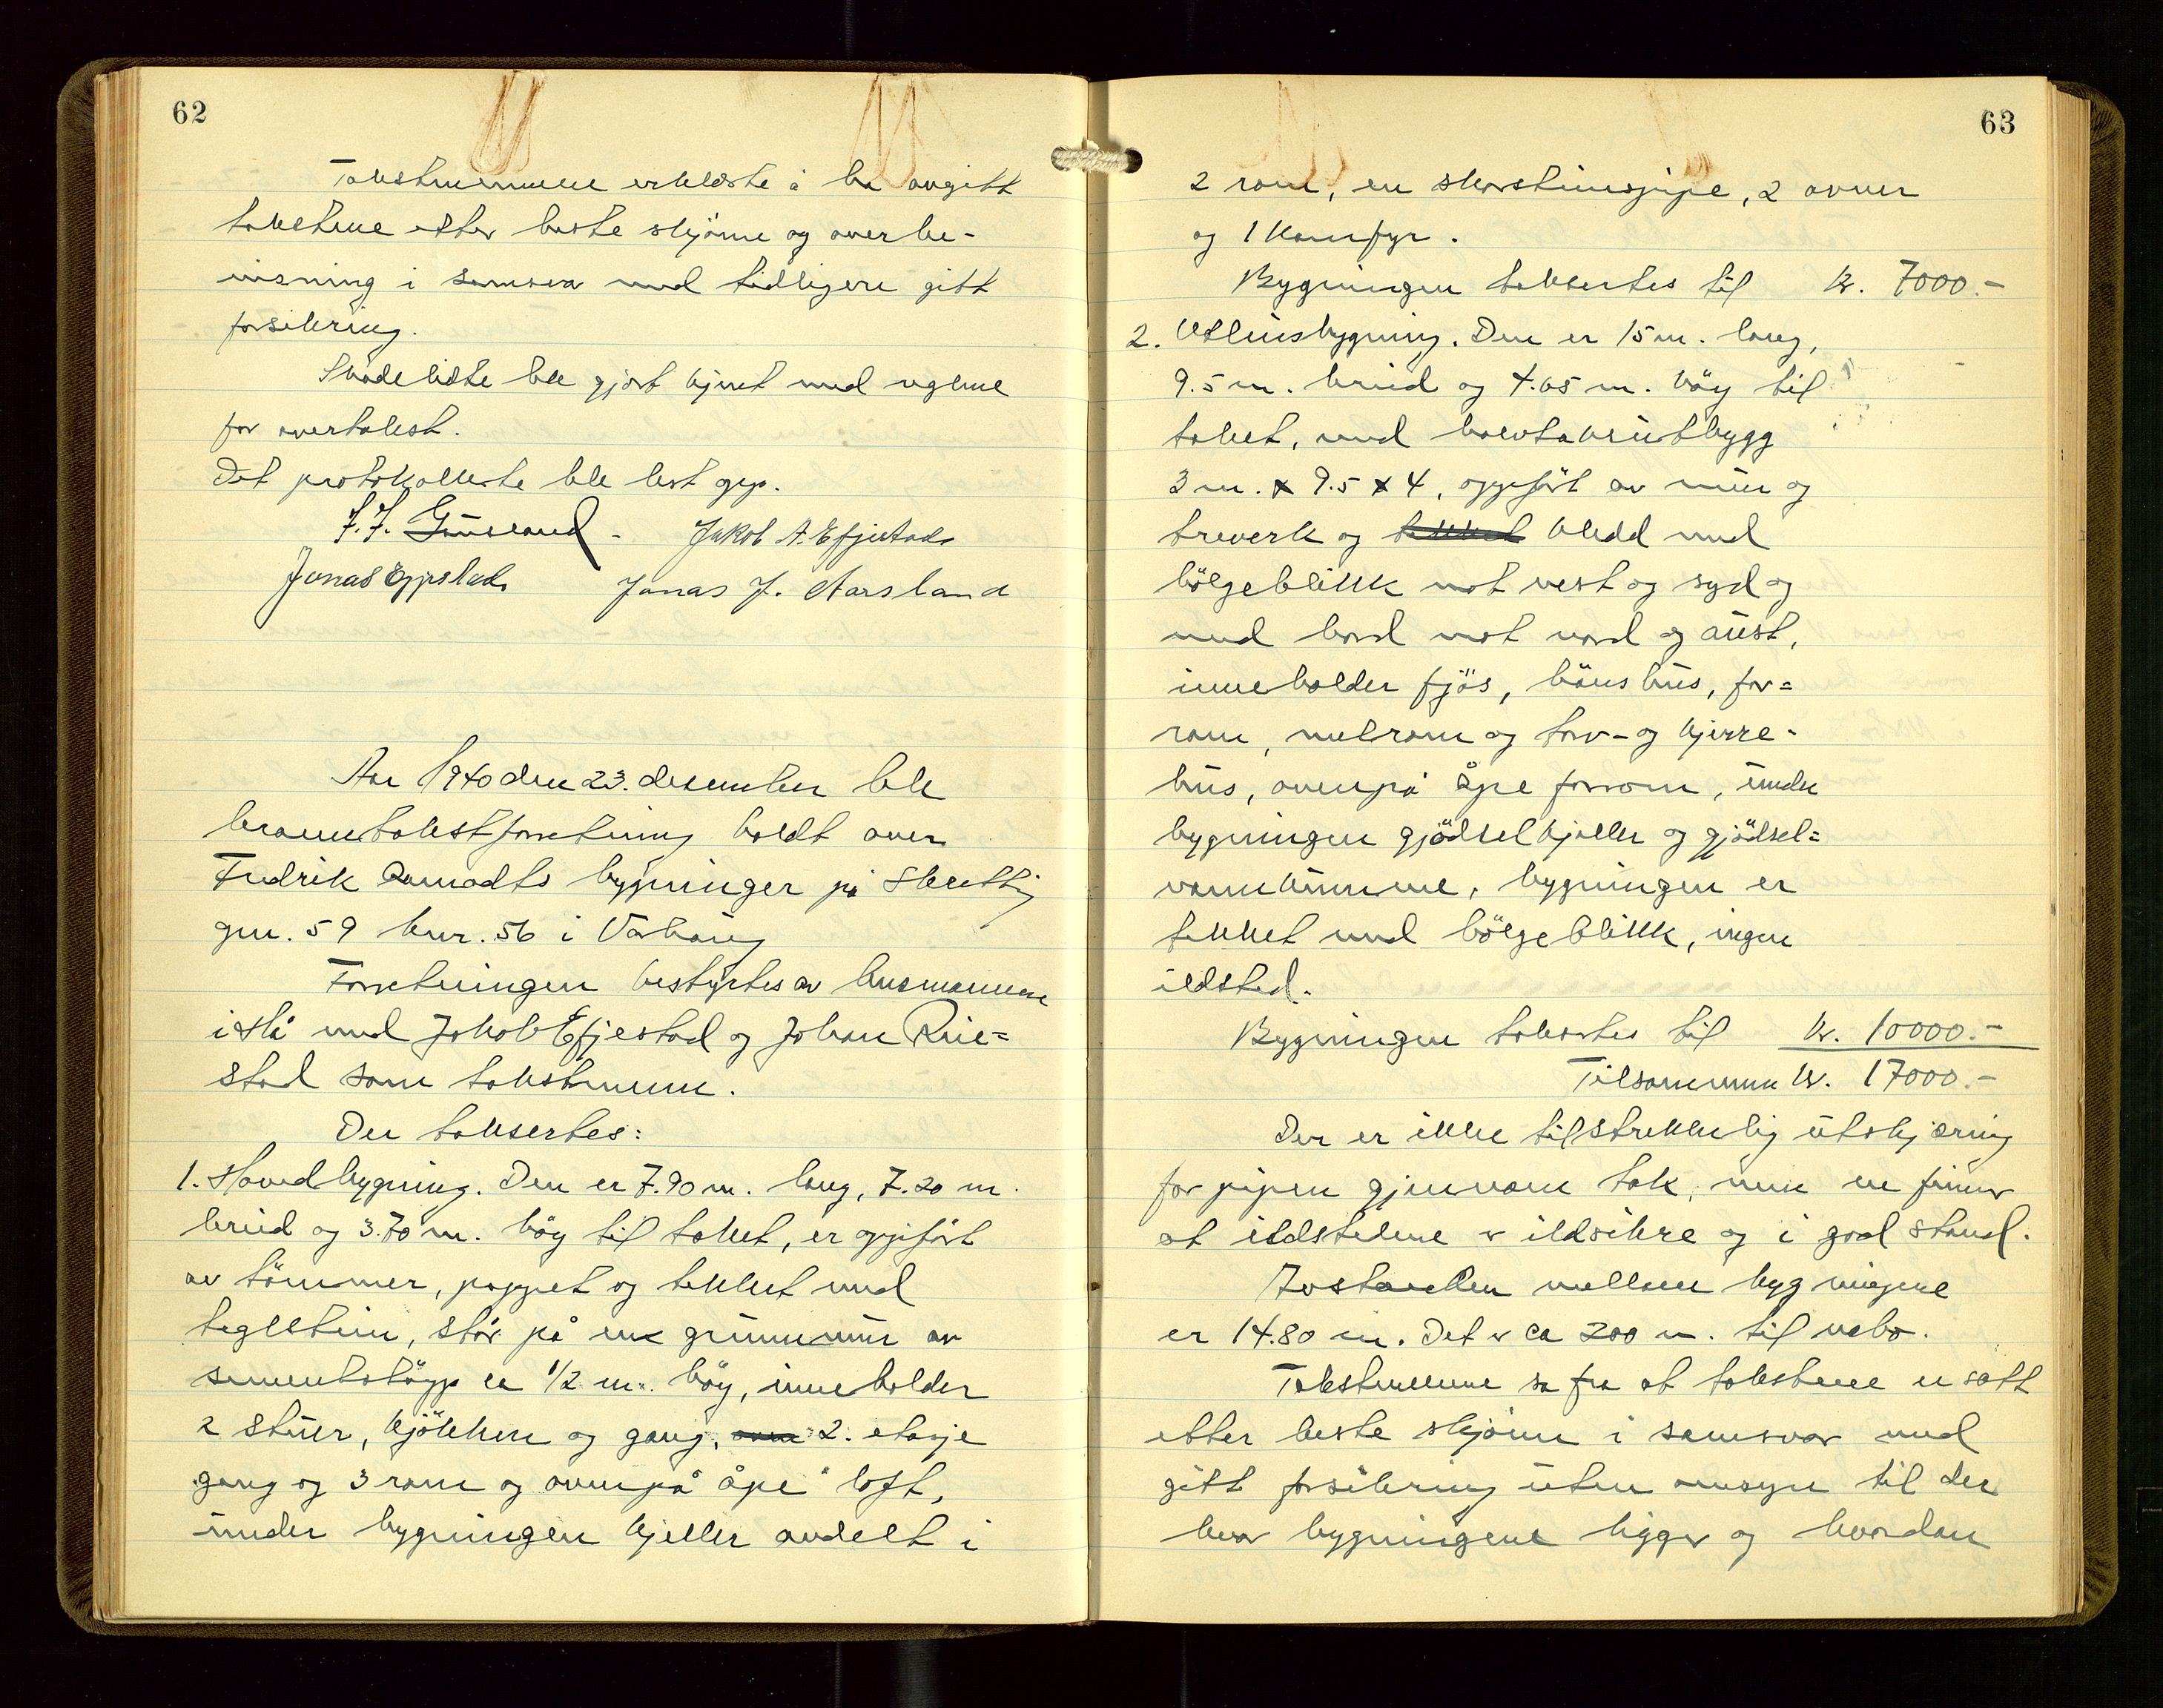 62
Takstmennene erklærte å ha avgitt
takstene etter beste skjønn og overbe-
visning i samsvar med tidligere gitt
forsikring.
Skadelidte ble gjort kjent med reglene
for overtakst.
Det protokollerte ble lest opp.
Jakob A. Efjestad
Jonas Eppstad Jonas J. Aarsland
Aar 1940 den 23. desember ble
branntakstforretning holdt over
Fredrik bygninger på
gnr. 59 bnr. 56 i Varhaug
Forretningen bestyrtes av lensmannen
i Hå med Jakob Efjestad og Johan Rie-
stad som takstmenn.
Der taksertes:
1. Hovedbygning. Den er 7.90 m. lang, 7.20 m.
breid og 3.70 m. höy til taket, er oppfört
av tömmer, pappet og tekket med
teglstein, står på en grunnmur av
sementstöyp ca 1/2 m. höy, inneholder
2 stuer, kjökken og gang, 2. etasje
gang og 3 rom og ovenpå åpe loft,
under bygningen kjeller avdelt i
63
2 rom, en skorsteinspipe, 2 ovner
og 1 komfyr.
Bygningen taksertes til kr. 7000.-
2. Utheisbygning. Den er 15 m. lang,
9.5 m. breid og 4.65 m. höy til
taket, med halvtaksutbygg
3 m. x 9.5 x 4, oppfört av mur og
treverk og tekket kledd med
bölgeblikk mot vest og syd og
med bord mot nord og aust,
inneholder fjös, hönshus, for=
rom, melrom og torv- og kjerre-
hus, ovenpå åpe forrom, under
bygningen gjödselkjeller og gjödsel=
vannkumme, bygningen er
tekket med bölgeblikk, ingen
ildsted.
Bygningen taksertes til kr. 10000.-
Tilsammen kr. 17000.-
Der er ikke tilstrekkelig utskjæring
for pipen gjennom tak, men en finner
at ildstedene er ildsikre og i god stand.
Avstanden mellom bygningene
er 14.80 m. Det er ca 200 m. til nabo.
Takstmennene sa fra at takstene er satt
etter beste skjönn i samsvar med
gitt forsikring uten omsyn til der
hvor bygningene ligger og hvordan